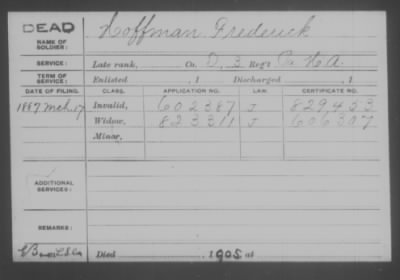 DEAD
NAME OF SOLDIER:
Hoffman Frederick
SERVICE:
Late rank, Co. D, 3 Reg't Pa. H A.
TERM OF SERVICE:
Enlisted , 1 Discharged , 1
DATE OF FILING. CLASS. APPLICATION NO. LAW. CERTIFICATE NO.
1887 Mch. 17 Invalid, 602387 J 829453
Widow, 823311 J 606307
Minor,
ADDITIONAL SERVICES:
REMARKS:
Died 1905, at